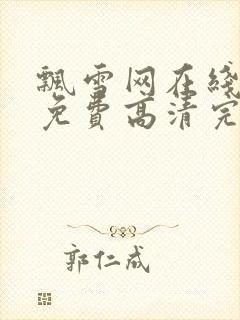 飘雪网在线
免费高清完
郭仁成